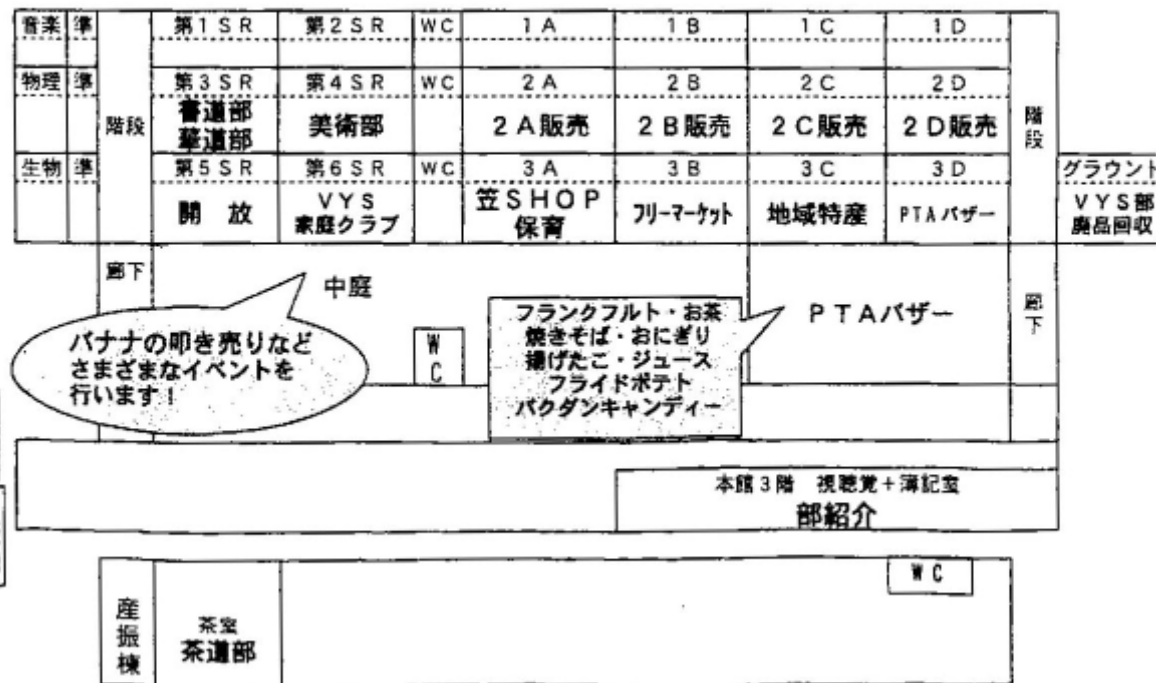 音楽 準 第1SR 第2SR WC 1A 1B 1C 1D
物理 準 第3SR 第4SR WC 2A 2B 2C 2D
階段 書道部 美術部 2A販売 2B販売 2C販売 2D販売 階段
華道部
生物 準 第5SR 第6SR WC 3A 3B 3C 3D グラウント
開放 VYS 笠SHOP フリーマーケット 地域特産 PTAバザー VYS部
家庭クラブ 保育 廃品回収
廊下 中庭 廊下
バナナの叩き売りなど
さまざまなイベントを
行います!
WC
フランクフルト・お茶
焼きそば・おにぎり
揚げたこ・ジュース
フライドポテト
バクダンキャンディー
PTAバザー
本館3階 視聴覚+簿記室
部紹介
WC
産振棟
茶室
茶道部